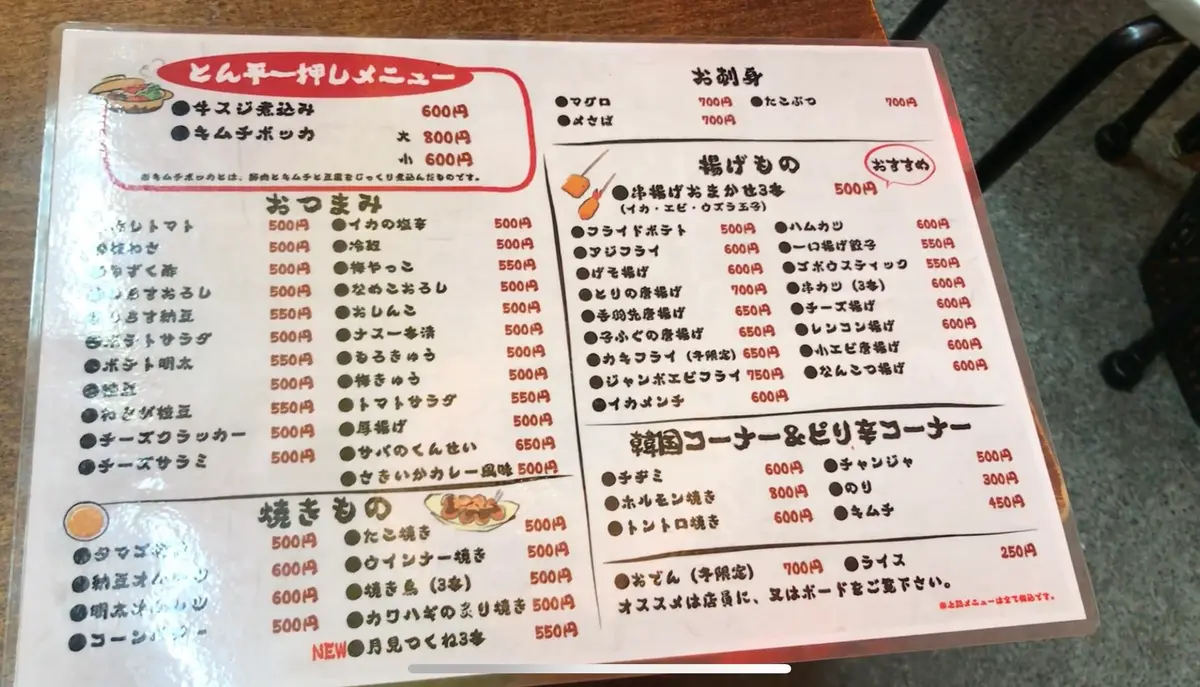 とん平一押しメニュー
●牛スジ煮込み 600円
●キムチポッカ 大 800円
小 600円
※キムチポッカとは、豚肉とキムチと豆腐をじっくり煮込んだものです。
おつまみ
トマト 500円
わさ 500円
もずく酢 500円
しらすおろし 500円
しらす納豆 550円
●ポテトサラダ 500円
●ポテト明太 550円
●枝豆 500円
●わさび枝豆 550円
●チーズクラッカー 500円
●チーズサラミ 500円
●イカの塩辛 500円
●冷奴 500円
●梅やっこ 550円
●なめこおろし 500円
●おしんこ 500円
●ナス一本漬 500円
●もろきゅう 500円
●梅きゅう 500円
●トマトサラダ 550円
●厚揚げ 500円
●サバのくんせい 650円
●さきいかカレー風味 500円
焼きもの
●タマゴ 500円
●納豆オムレツ 600円
●明太オムレツ 600円
●コーンバター 500円
●たこ焼き 500円
●ウインナー焼き 500円
●焼き鳥 (3本) 500円
●カワハギの炙り焼き 500円
NEW●月見つくね3本 550円
お刺身
●マグロ 700円
●〆さば 700円
●たこぶつ 700円
揚げもの
おすすめ
●串揚げおまかせ3本 500円
(イカ・エビ・ウズラ玉子)
●フライドポテト 500円
●アジフライ 600円
●げそ揚げ 600円
●とりの唐揚げ 700円
●手羽先唐揚げ 650円
●子ふぐの唐揚げ 650円
●カキフライ (冬限定) 650円
●ジャンボエビフライ 750円
●イカメンチ 600円
●ハムカツ 600円
●一口揚げ餃子 550円
●ゴボウスティック 550円
●串カツ (3本) 600円
●チーズ揚げ 600円
●レンコン揚げ 600円
●小エビ唐揚げ 600円
●なんこつ揚げ 600円
韓国コーナー&ピリ辛コーナー
●チヂミ 600円
●ホルモン焼き 800円
●トントロ焼き 600円
●チャンジャ 500円
●のり 300円
●キムチ 450円
●おでん (冬限定) 700円
●ライス 250円
オススメは店員に、又はボードをご覧下さい。
※上記メニューは全て税込です。